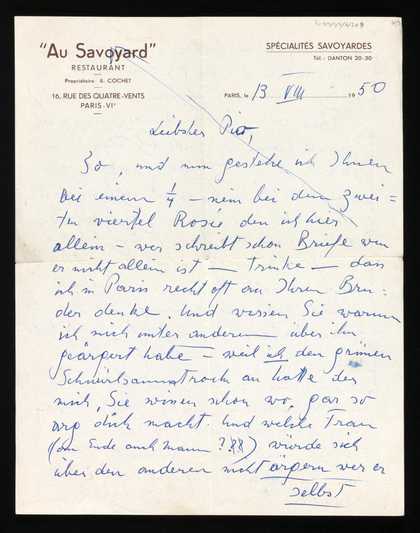 "Au Savoyard"
RESTAURANT
Propriétaire: E. COCHET
16, RUE DES QUATRE-VENTS
PARIS-VIe
SPÉCIALITÉS SAVOYARDES
Tél.: DANTON 20-30
PARIS, le 13 VIII 1950
Liebster
So, und nun gestehe ich Ihnen
bei einem 1/4 - nein bei dem zwei-
ten viertel Rosée den ich hier
allein - wer schreibt schon Briefe wenn
er nicht allein ist - trinke - dass
ich in Paris recht oft an Ihren Bru-
der denke. Und wissen Sie warum
ich mich unter anderem über ihn
geärgert habe - weil ich den grünen
Schnürlsammtrock an hatte der
mich, Sie wissen schon wo, gar so
arg dick macht. Und welche Frau
(am Ende auch Mann? ) würde sich
über den anderen nicht ärgern wer er
selbst